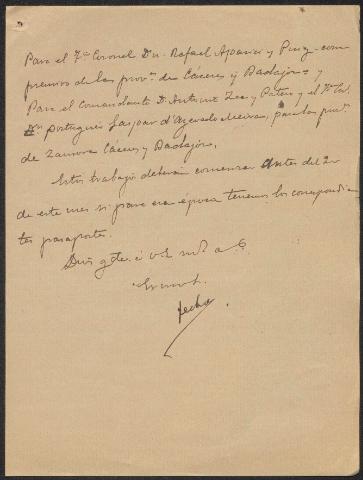 Para el Tte Coronel Dn Rafael Aparici y Puig - com
premios de las provas de Cáceres y Badajoz y
Para el Comandante D. Antonio Lea y el Tte Col.
Dn Portugués Gaspar d'Azevedo Meiras, para las provas
de Zamora Cáceres y Badajoz.
Estos trabajos deberán comenzar antes del 20
de este mes si para esa época tenemos los correspondien
tes pasaportes.
Dios gde. á V.E. ms. as.
fecha